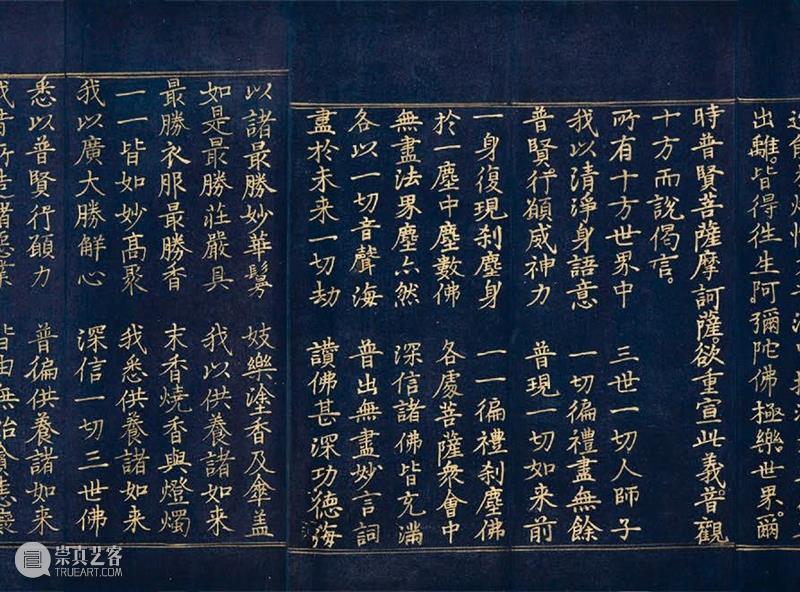 出離。皆得往生。阿彌陀佛極樂。世界。爾
時普賢菩薩摩訶薩。欲重宣此義。普觀
十方而說偈言。
所有十方世界中 三世一切人師子
我以清淨身語意 一切徧禮盡無餘
普賢行願威神力 普現一切如来前
一身復現剎塵身 一一徧禮剎塵佛
於一塵中塵數佛 各處菩薩衆會中
無盡法界塵亦然 深信諸佛皆充滿
各以一切音聲海 普出無盡妙言詞
盡於未来一切劫 讚佛甚深功德海
以諸最勝妙華鬘 妓樂塗香及傘盖
如是最勝莊嚴具 我以供養諸如来
最勝衣服最勝香 末香燒香與燈燭
一一皆如妙髙聚 我悉供養諸如来
我以廣大勝解心 深信一切三世佛
悉以普賢行願力 普徧供養諸如来
我昔所造諸惡業 皆由無始貪恚
崇真艺客
TRUEART.COM